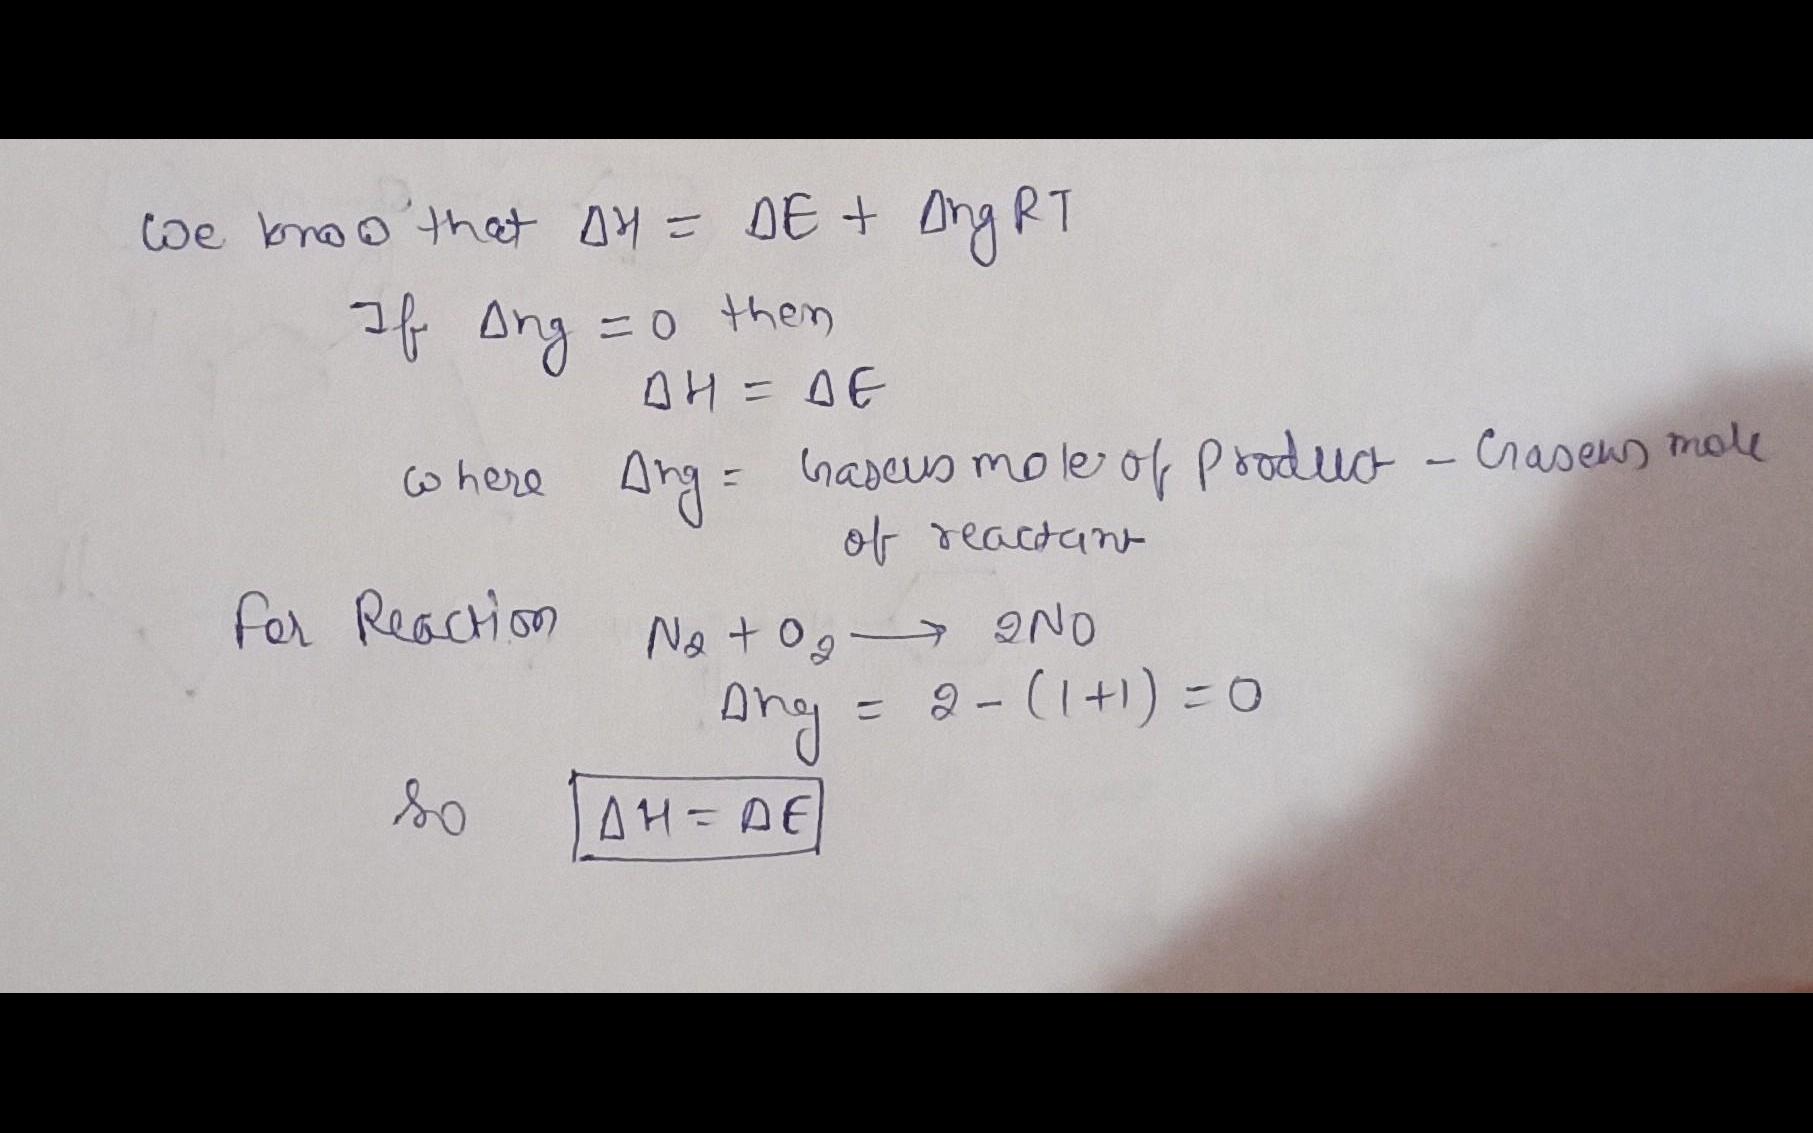 We know that ΔH = ΔE + Δng RT
If Δng = 0 then
ΔH = ΔE
where Δng = Gaseus mole of Product - Gaseus mole
of reactant
For Reaction N2 + O2 → 2NO
Δng = 2 - (1+1) = 0
So ΔH = ΔE